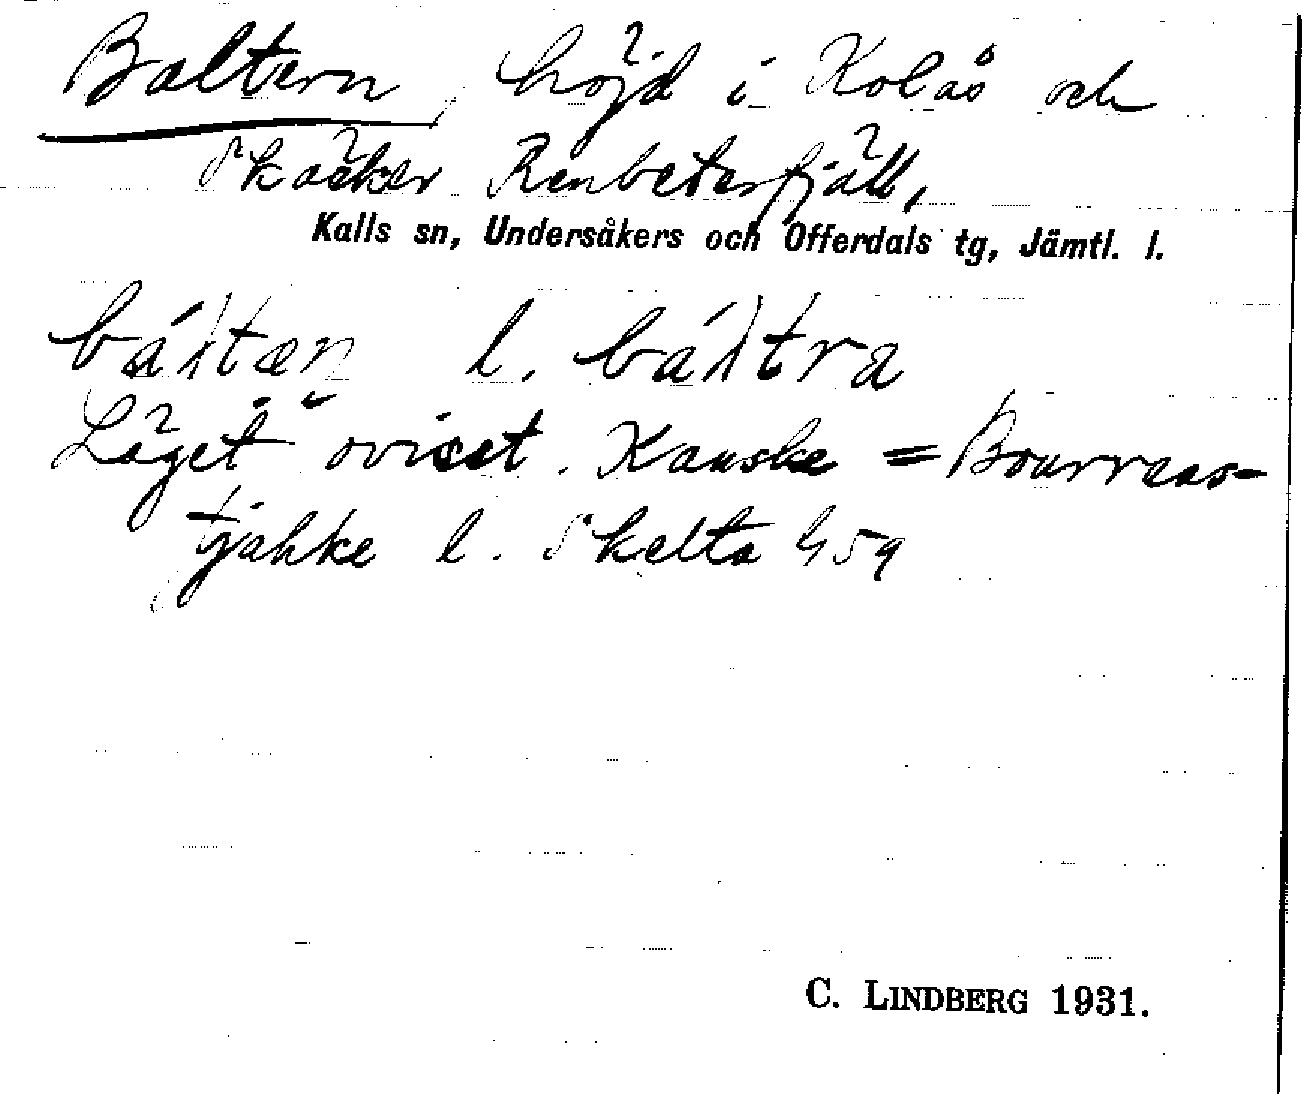 Baltern, höjd i Kolås och
Skäcker Renbetesfjäll,
Kalls sn, Undersåkers och Offerdals tg, Jämtl. l.
l.
Läget ovisst. Kanske = Bourreas-
tjahke l. Skelta 459
C. LINDBERG 1931.